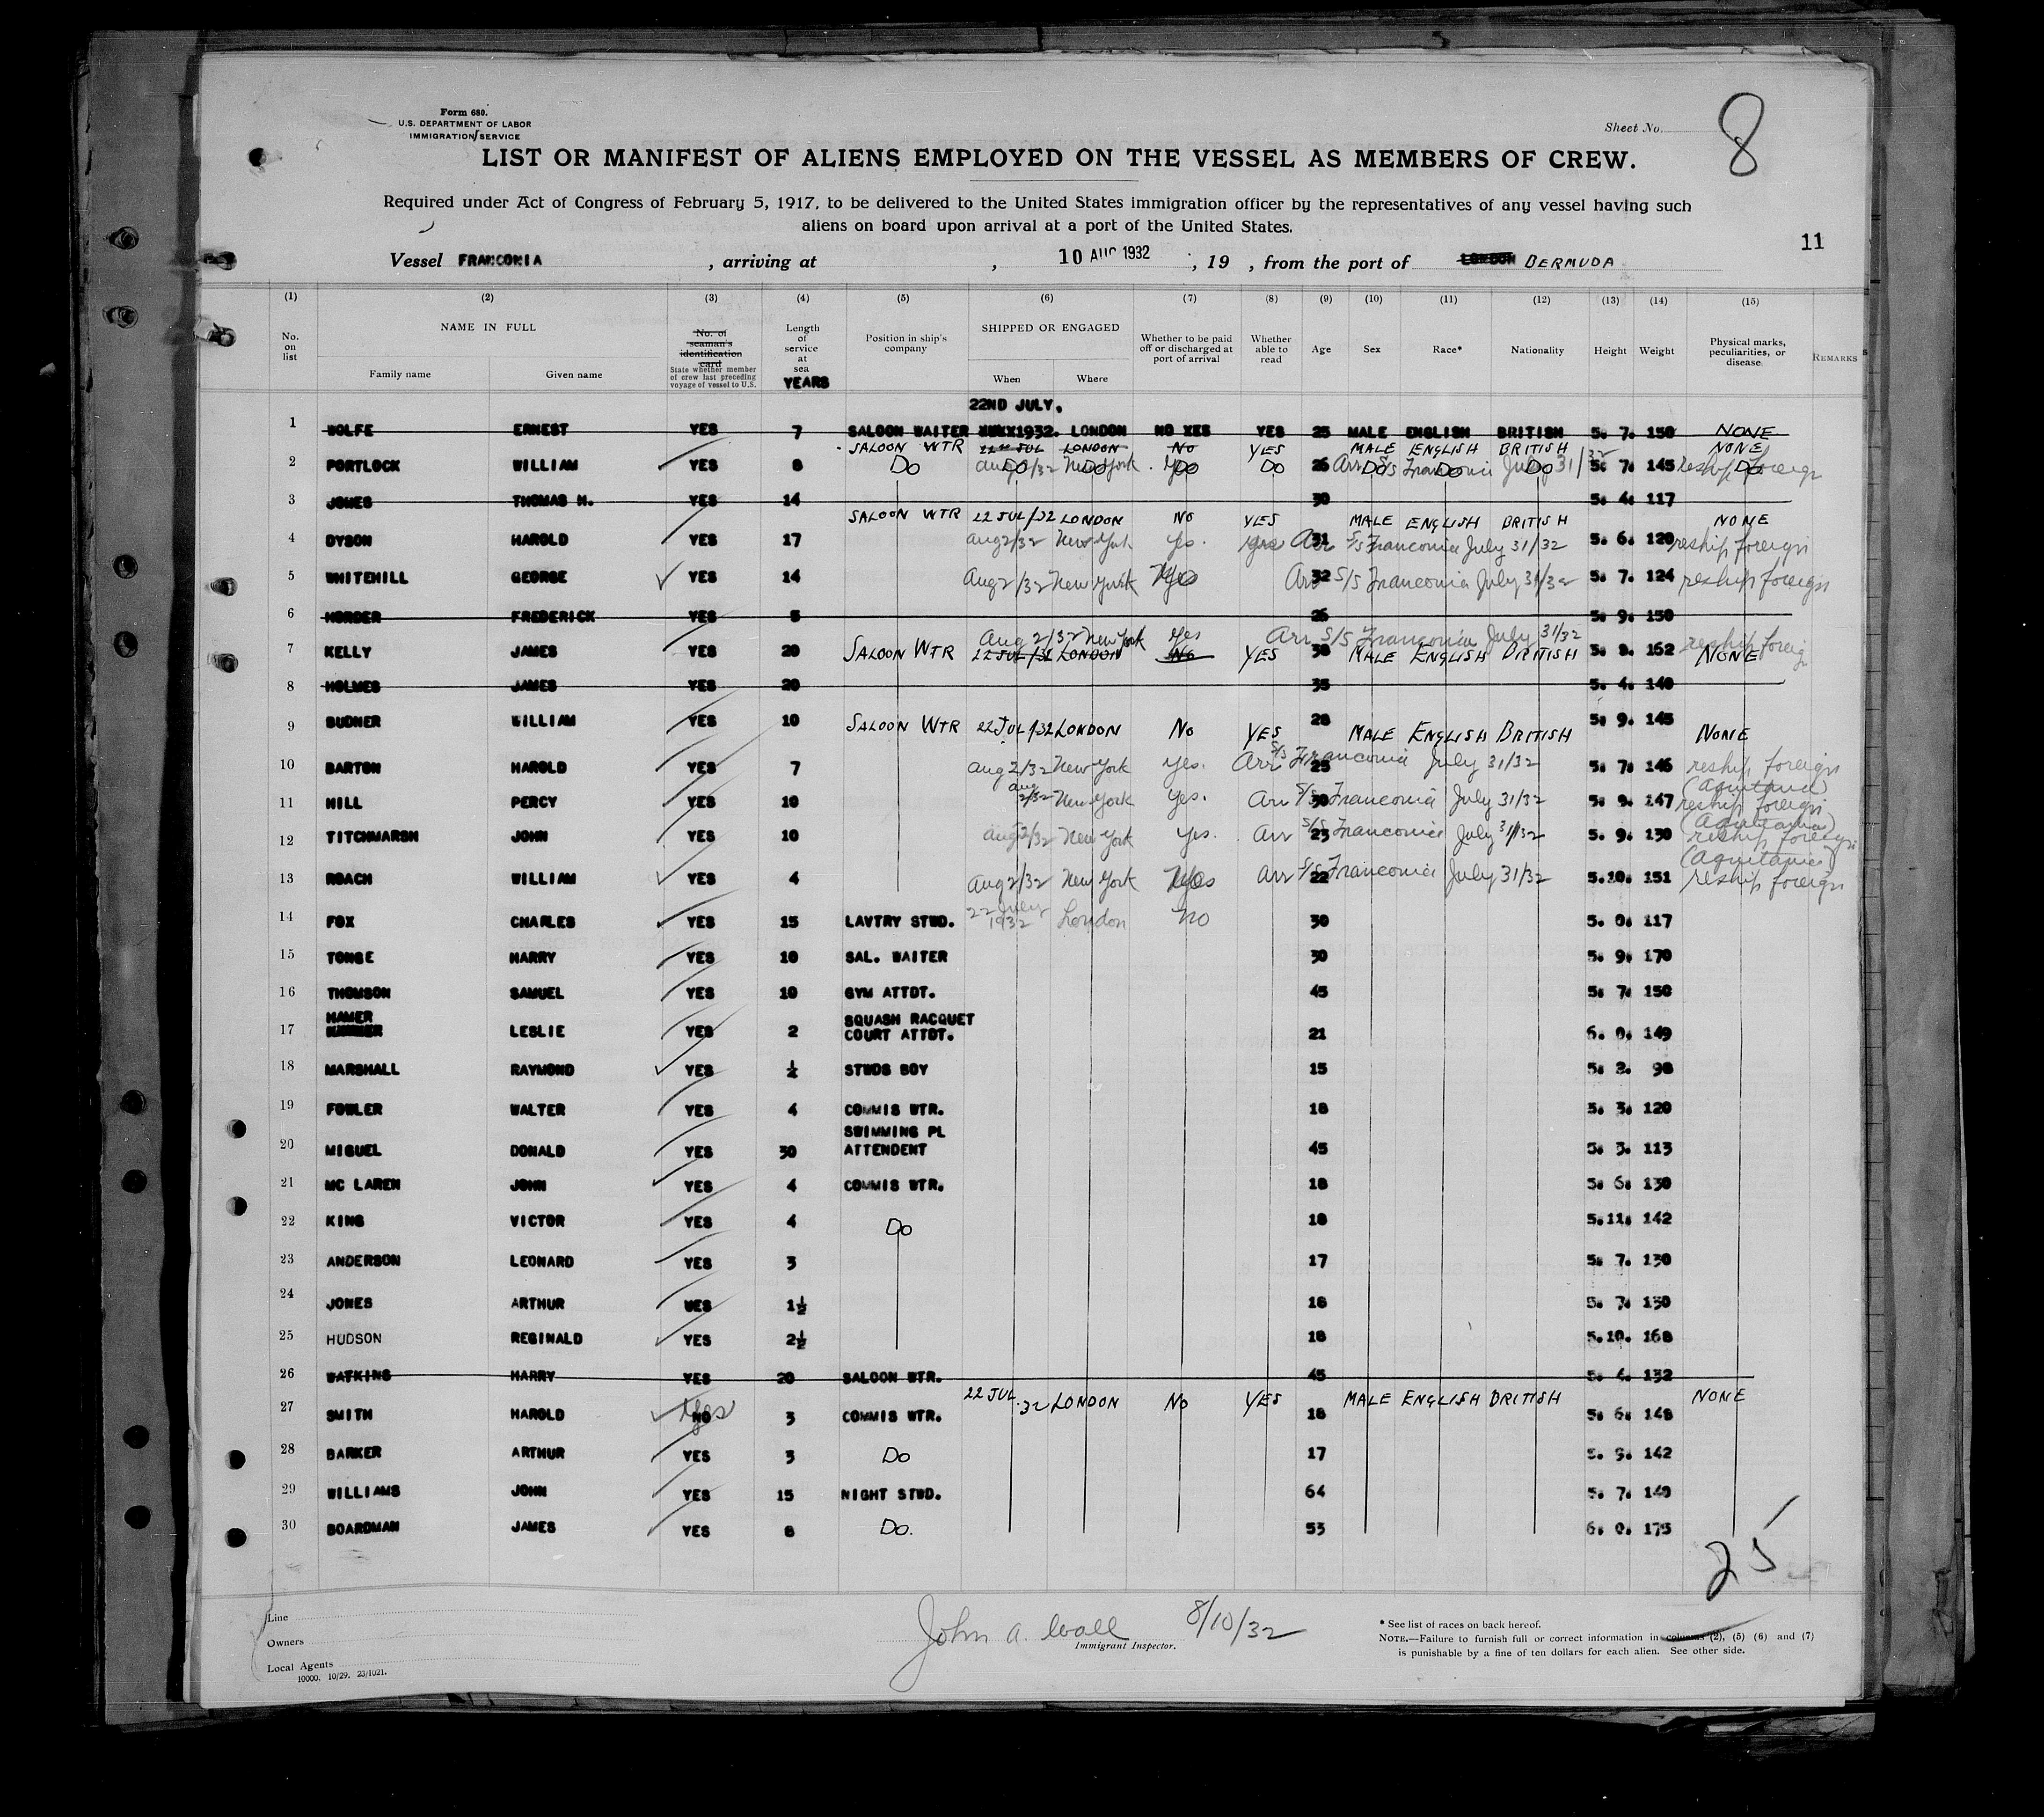 8
Form 680.
U.S. DEPARTMENT OF LABOR
IMMIGRATION SERVICE
Sheet No.
LIST OR MANIFEST OF ALIENS EMPLOYED ON THE VESSEL AS MEMBERS OF CREW.
Required under Act of Congress of February 5, 1917, to be delivered to the United States immigration officer by the representatives of any vessel having such
aliens on board upon arrival at a port of the United States.
11
Vessel FRANCONIA , arriving at , 10 AUG 1932 , 19 , from the port of LONDON BERMUDA
(1) (2) (3) (4) (5) (6) (7) (8) (9) (10) (11) (12) (13) (14) (15)
No. on list NAME IN FULL Family name Given name No. of seaman's identification card State whether member of crew last preceding voyage of vessel to U.S. Length of service at sea YEARS Position in ship's company SHIPPED OR ENGAGED When Where Whether to be paid off or discharged at port of arrival Whether able to read Age Sex Race* Nationality Height Weight Physical marks, peculiarities, or disease. REMARKS
22ND JULY,
1 WOLFE ERNEST YES 7 SALOON WAITER 1932. LONDON NO YES 25 MALE ENGLISH BRITISH 5. 7. 150 NONE
SALOON WTR 22nd JUL LONDON No YES MALE ENGLISH BRITISH NONE
2 PORTLOCK WILLIAM YES 8 Do Aug 2/32 Do New York Do Yes Do Do 26 Arr Do S/S Franconia Do July Do 31/32 5. 7. 145 reship foreign Do
3 JONES THOMAS H. YES 14 30 5. 4. 117
SALOON WTR 22 JUL/32 LONDON NO YES MALE ENGLISH BRITISH NONE
4 DYSON HAROLD YES 17 Aug 2/32 New York Yes. 31 Arr S/S Franconia July 31/32 5. 6. 120 reship foreign
5 WHITEHILL GEORGE YES 14 Aug 2/32 New York Yes 32 Arr S/S Franconia July 31/32 5. 7. 124 reship foreign
6 HORDER FREDERICK YES 5 26 5. 9. 150
Aug 2/32 New York Yes Arr S/S Franconia July 31/32 reship foreig
7 KELLY JAMES YES 20 SALOON WTR 22 JUL/32 LONDON No YES 38 MALE ENGLISH BRITISH 5. 8. 162 NONE
8 HOLMES JAMES YES 20 35 5. 4. 140
9 BUDNER WILLIAM YES 10 SALOON WTR 22 JUL/32 LONDON No YES 28 MALE ENGLISH BRITISH 5. 9. 145 NONE
10 BARTON HAROLD YES 7 Aug 2/32 New York Yes. Arr S/S Franconia July 31/32 25 5. 7. 146 reship foreign
(Aquitania)
11 HILL PERCY YES 10 Aug 2/32 New York Yes. Arr S/S Franconia July 31/32 30 5. 9. 147 reship foreign
(Aquitania)
12 TITCHMARSH JOHN YES 10 Aug 2/32 New York Yes. Arr S/S Franconia July 31/32 23 5. 9. 130 reship foreign
(Aquitania)
13 ROACH WILLIAM YES 4 Aug 2/32 New York Yes Arr S/S Franconia July 31/32 22 5.10. 151 reship foreign
14 FOX CHARLES YES 15 LAVTRY STWD. 22 July 1932 London No 30 5. 0. 117
15 TONGE HARRY YES 10 SAL. WAITER 30 5. 9. 170
16 THOMSON SAMUEL YES 10 GYM ATTDT. 45 5. 7. 150
17 HAMER LESLIE YES 2 SQUASH RACQUET COURT ATTDT. 21 6. 0. 149
18 MARSHALL RAYMOND YES ½ STWDS BOY 15 5. 2. 98
19 FOWLER WALTER YES 4 COMMIS WTR. 18 5. 3. 120
20 MIGUEL DONALD YES 30 SWIMMING PL ATTENDENT 45 5. 3. 113
21 MC LAREN JOHN YES 4 COMMIS WTR. 18 5. 6. 130
22 KING VICTOR YES 4 Do 18 5.11. 142
23 ANDERSON LEONARD YES 3 17 5. 7. 130
24 JONES ARTHUR YES 1½ 18 5. 7. 150
25 HUDSON REGINALD YES 2½ 18 5.10. 168
26 WATKINS HARRY YES 20 SALOON WTR. 45 5. 4. 132
27 SMITH HAROLD NO Yes 3 COMMIS WTR. 22 JUL. 32 LONDON No YES 18 MALE ENGLISH BRITISH 5. 6. 148 NONE
28 BARKER ARTHUR YES 3 Do 17 5. 9. 142
29 WILLIAMS JOHN YES 15 NIGHT STWD. 64 5. 7. 140
30 BOARDMAN JAMES YES 8 Do. 53 6. 0. 175
25
Line
Owners
Local Agents
10000, 10/29. 23/1021.
John A. Wall 8/10/32
Immigrant Inspector.
* See list of races on back hereof.
NOTE.—Failure to furnish full or correct information in columns (2), (5) (6) and (7)
is punishable by a fine of ten dollars for each alien. See other side.